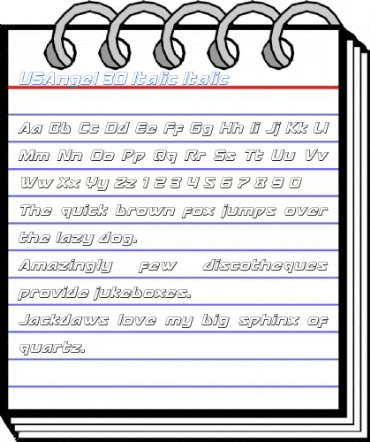 USAngel 3D Italic Italic
Aa Bb Cc Dd Ee Ff Gg Hh Ii Jj Kk Ll
Mm Nn Oo Pp Qq Rr Ss Tt Uu Vv
Ww Xx Yy Zz 1 2 3 4 5 6 7 8 9 0
The quick brown fox jumps over
the lazy dog.
Amazingly few discotheques
provide jukeboxes.
Jackdaws love my big sphinx of
quartz.